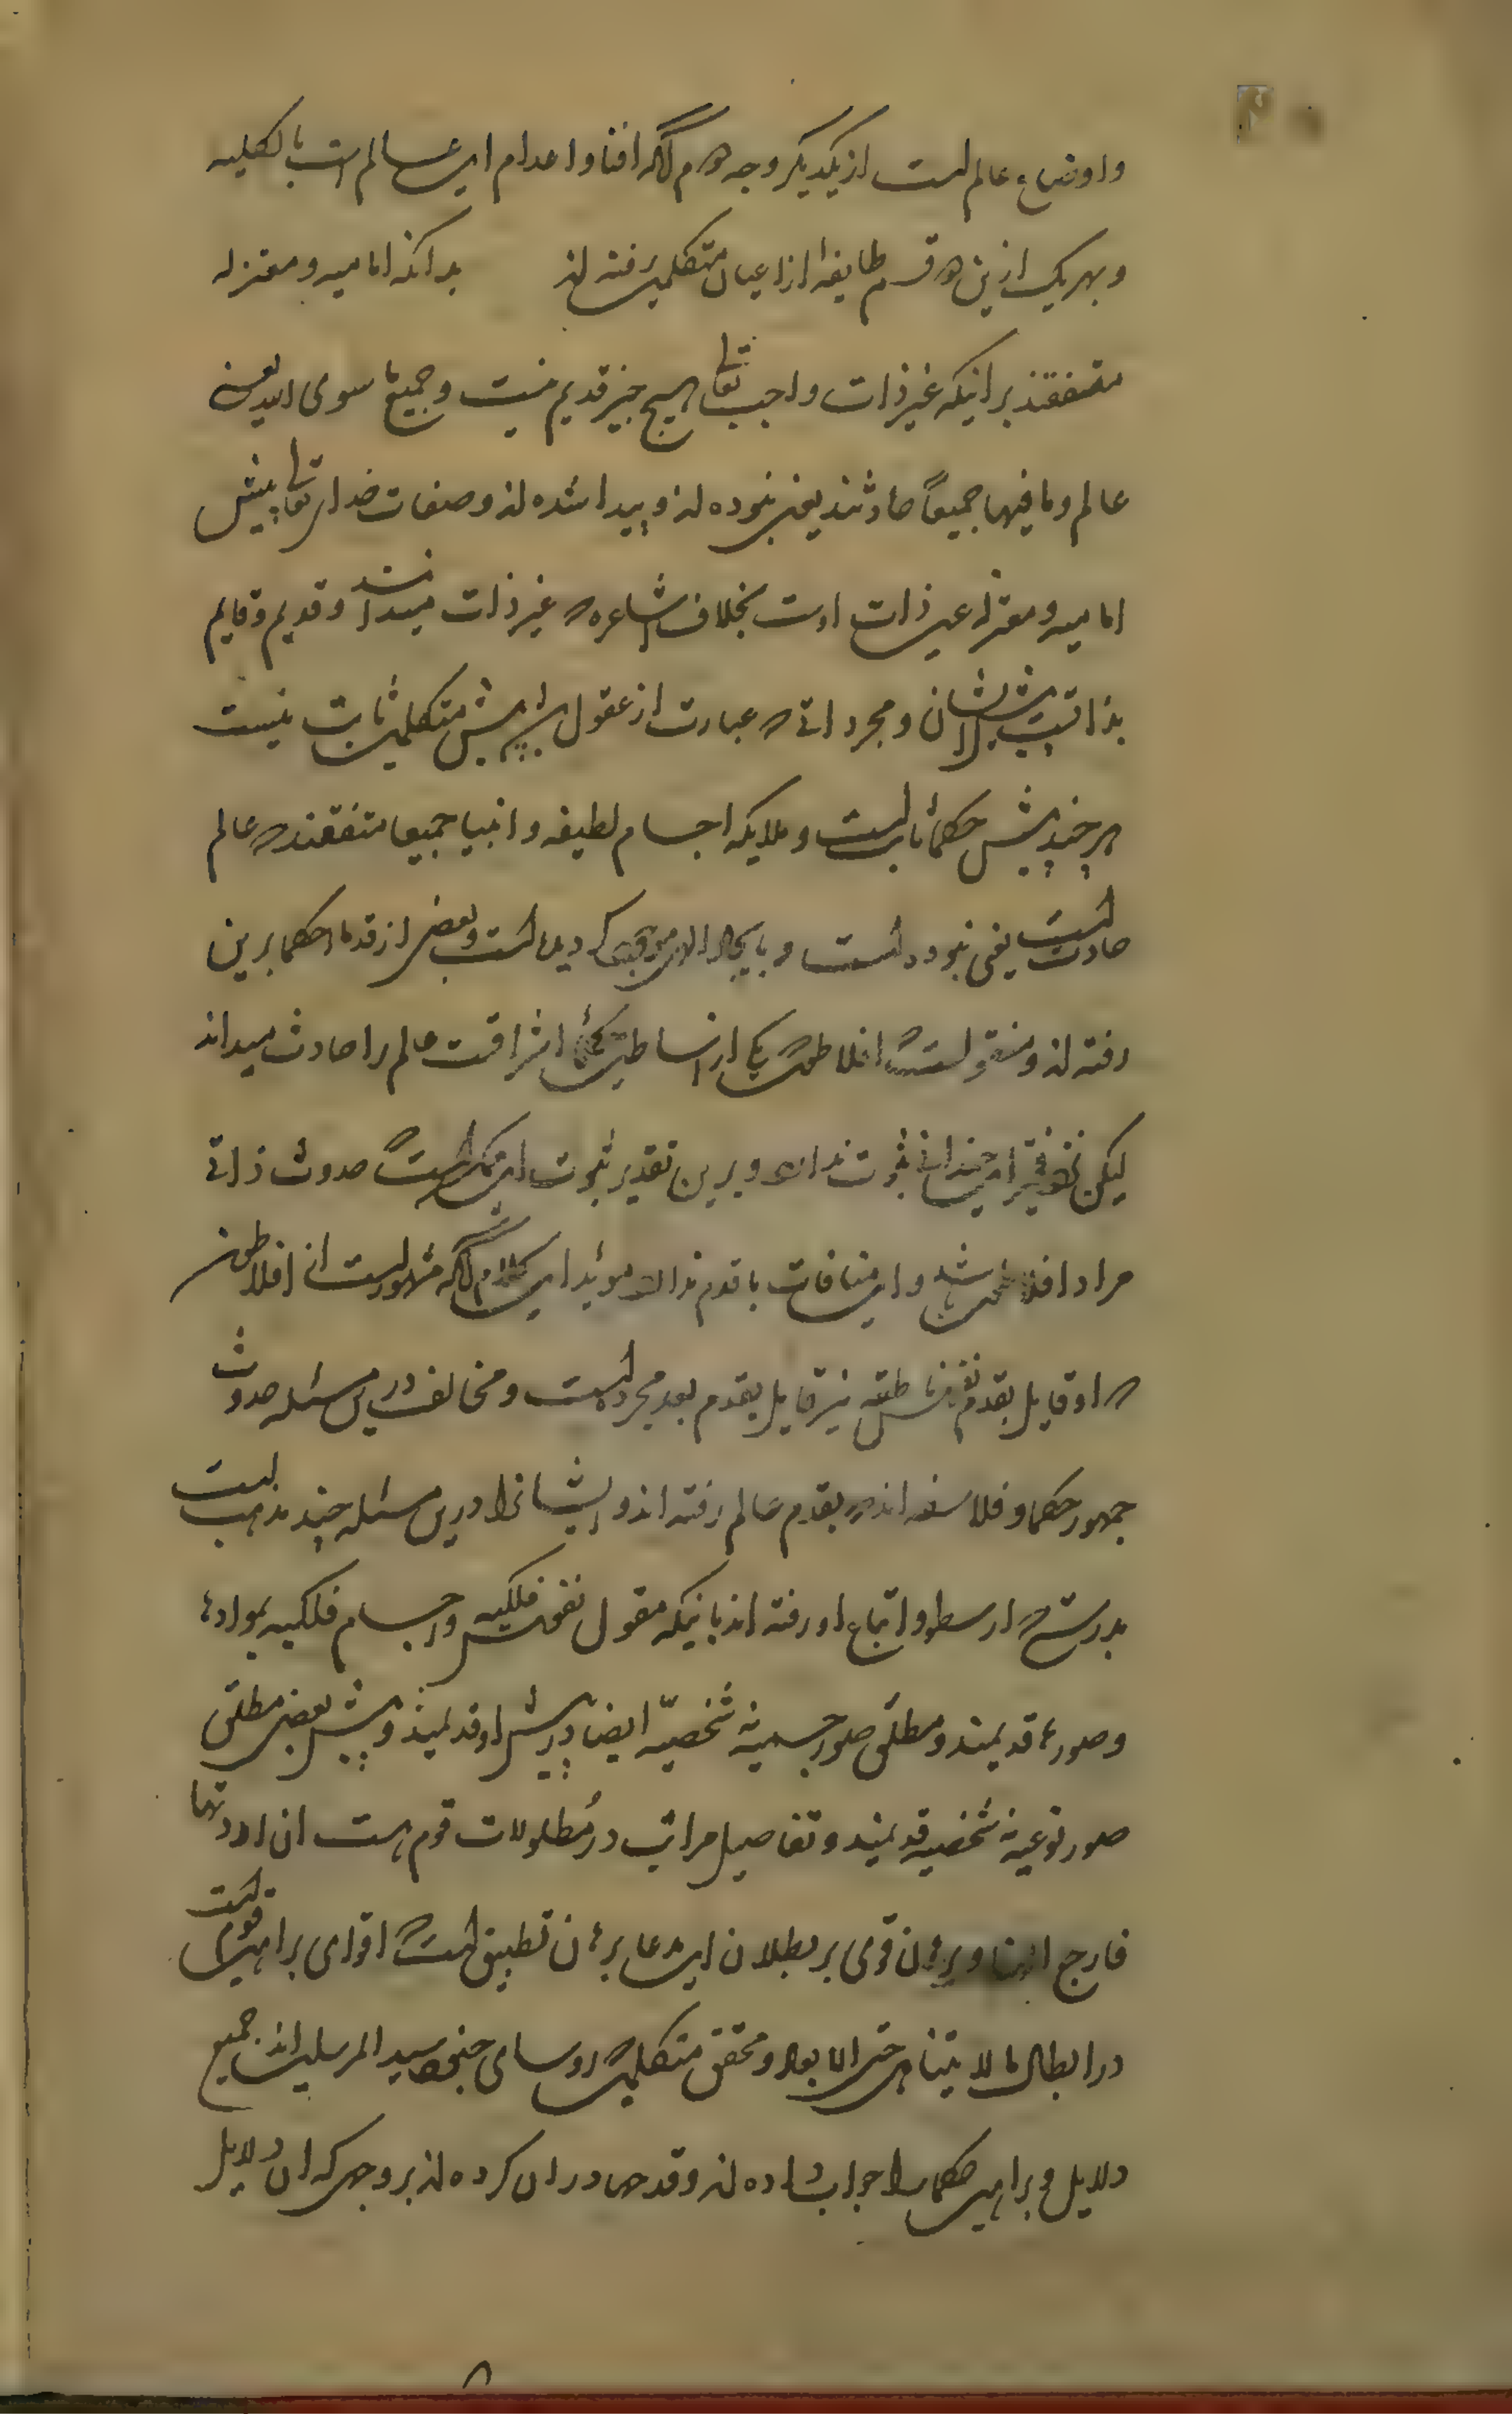 و اوضاع عالم است از یکدیگر وجه دوم آنکه افنا و اعدام این عالم است بالکلیه
و بهر یک ازین دو قسم طایفه از اعیان متکلمین رفته‌اند بدانکه امامیه و معتزله
متفقند بر اینکه غیر ذات واجب تعالی هیچ چیز قدیم نیست و جمیع ما سوی الله یعنی
عالم و ما فیها جمیعاً حادثند یعنی نبوده‌اند و پیدا شده‌اند و صفات خدای تعالی پیش
امامیه و معتزله عین ذات اوست بخلاف اشاعره که غیر ذات میدانند و قدیم و قایم
بذاتست پیش ایشان و مجرداتی که عبارت از عقول پیش متکلمین ثابت نیست
هر چند پیش حکما ثابت است و ملایکه اجسام لطیفه و انبیا جمیعا متفقند که عالم
حادث است یعنی نبود است و بایجاد گردیده است و بعضی از قدما حکما برین
رفته‌اند و منقولست که افلاطون که یکی از اساطین حکمای اشراقست عالم را حادث میداند
لیکن فقیر این چندانی ثبوت ندارد و برین تقدیر ثبوت این ممکن است که حدوث ذاتی
مراد افلاطون باشد و این منافات با قدم ندارد مؤید این کلام آنکه مشهور است از افلاطون
که او قایل بقدم نفس ناطقه نیز قایل بقدم بعد مجرد است و مخالف درین مسئله حدوث
جمهور حکما و فلاسفه‌اند که بقدم عالم رفته‌اند و ایشانرا درین مسئله چند مذهب است
بدرستی که ارسطو و اتباع او رفته‌اند باینکه عقول نفوس فلکیه و اجسام فلکیه بموادها
و صورها قدیمند و مطلق صور جسمیه شخصیّه ایضا پیش او قدیمند و پیش بعضی مطلق
صور نوعیه شخصیه قدیمند و تفاصیل مراتب در مطولات قوم هست ان اردتها
فارجع الینا و برهان قوی بر بطلان این مدعا برهان تطبیق است که اقوای براهین قوم است
در ابطال ما لا یتناهی حتی الابعاد و محقق متکلمین که روسای سید المرسلین‌اند جمیع
دلایل و براهین حکما را جواب داده‌اند و قدح در ان کرده‌اند بر وجهی که ان دلایل
۸